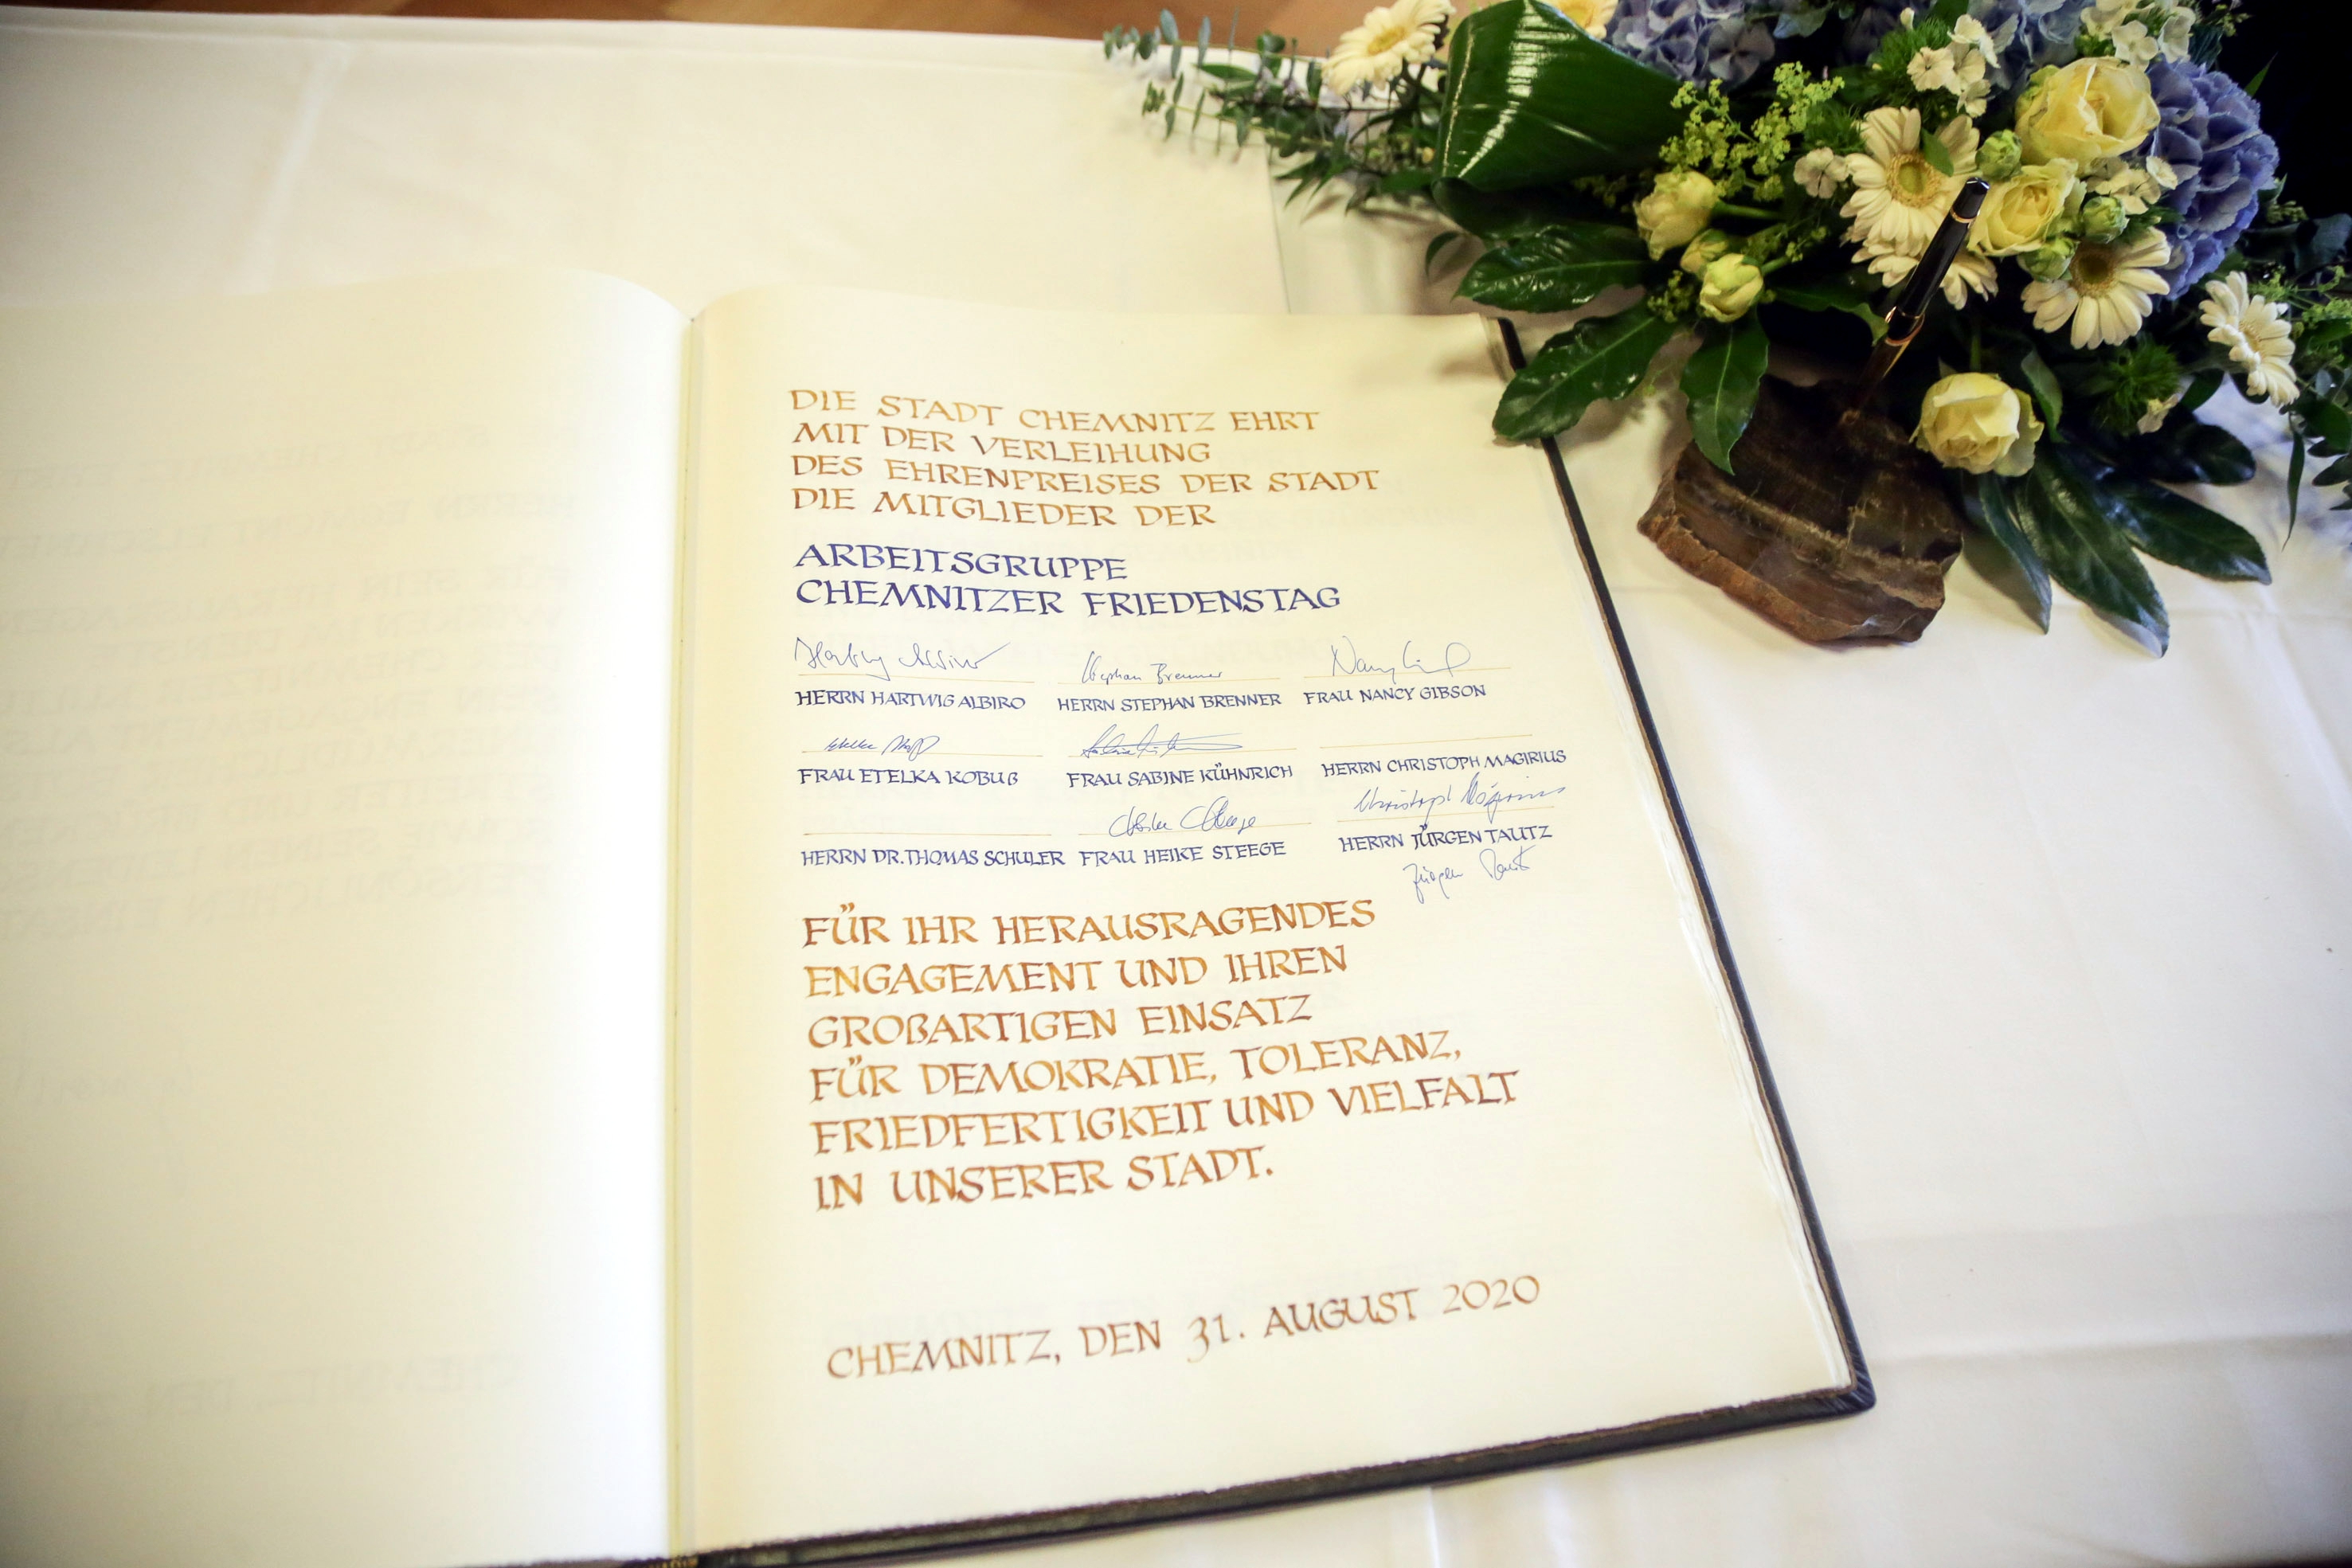 DIE STADT CHEMNITZ EHRT
MIT DER VERLEIHUNG
DES EHRENPREISES DER STADT
DIE MITGLIEDER DER
ARBEITSGRUPPE
CHEMNITZER FRIEDENSTAG
Stephan Brenner
HERRN HARTWIG ALBIRO HERRN STEPHAN BRENNER FRAU NANCY GIBSON
FRAU ETELKA KOBUß FRAU SABINE KÜHNRICH HERRN CHRISTOPH MAGIRIUS
Christoph Magirius
HERRN DR. THOMAS SCHULER FRAU HEIKE STEEGE HERRN JÜRGEN TAUTZ
Jürgen Tautz
FÜR IHR HERAUSRAGENDES
ENGAGEMENT UND IHREN
GROßARTIGEN EINSATZ
FÜR DEMOKRATIE, TOLERANZ,
FRIEDFERTIGKEIT UND VIELFALT
IN UNSERER STADT.
CHEMNITZ, DEN 31. AUGUST 2020